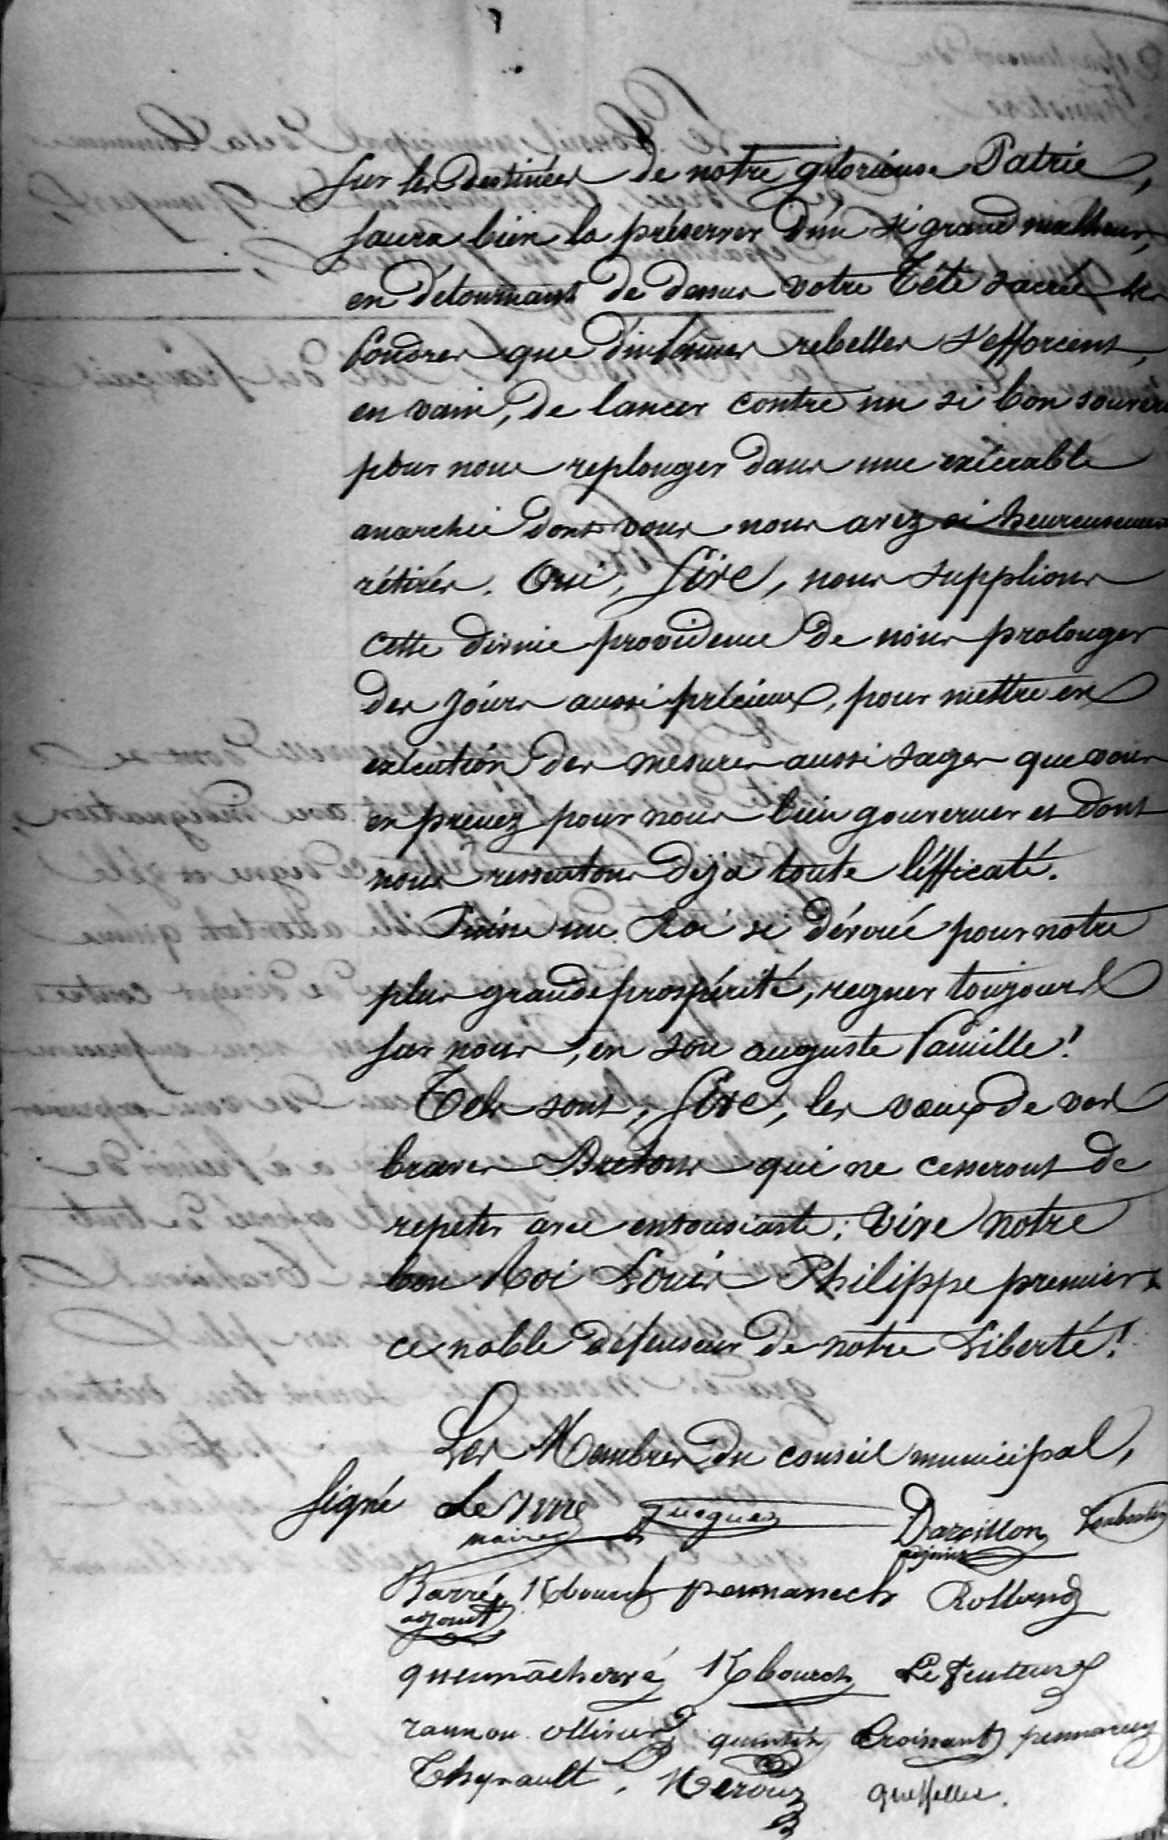 sur les destinées de notre glorieuse Patrie,
saura bien la préserver d'un si grand malheur,
en détournant de dessus votre Tête sacrée les
foudres que d'infâmes rebelles s'efforcent,
en vain, de lancer contre un si bon souverain
pour nous replonger dans une exécrable
anarchie dont vous nous avez si heureusement
rétirés. Oui, Sire, nous supplions
cette divine providence de nous prolonger
des jours aussi précieux, pour mettre en
exécution des mesures aussi sages que vous
en prenez pour nous bien gouverner et dont
nous ressentons déjà toute l'éfficaté.
Puisse un Roi si dévoué pour notre
plus grande prospérité, regner toujours
sur nous, en son auguste famille!
Tels sont, Sire, les vœux de vos
braves Bretons qui ne cesseront de
repeter avec entousiaste: Vive notre
bon Roi Louis Philippe premier
ce noble défenseur de notre Liberté!
Les Membres du conseil municipal,
Signé Le Darcillon
maire adjoint
Barré Kbourch pennanech Rolland
adjoint
quemnéhervé Kbourch Le feuteun
rannou ollivier quintin Croissant pennarun
Thynault. Nerouz queffelec.